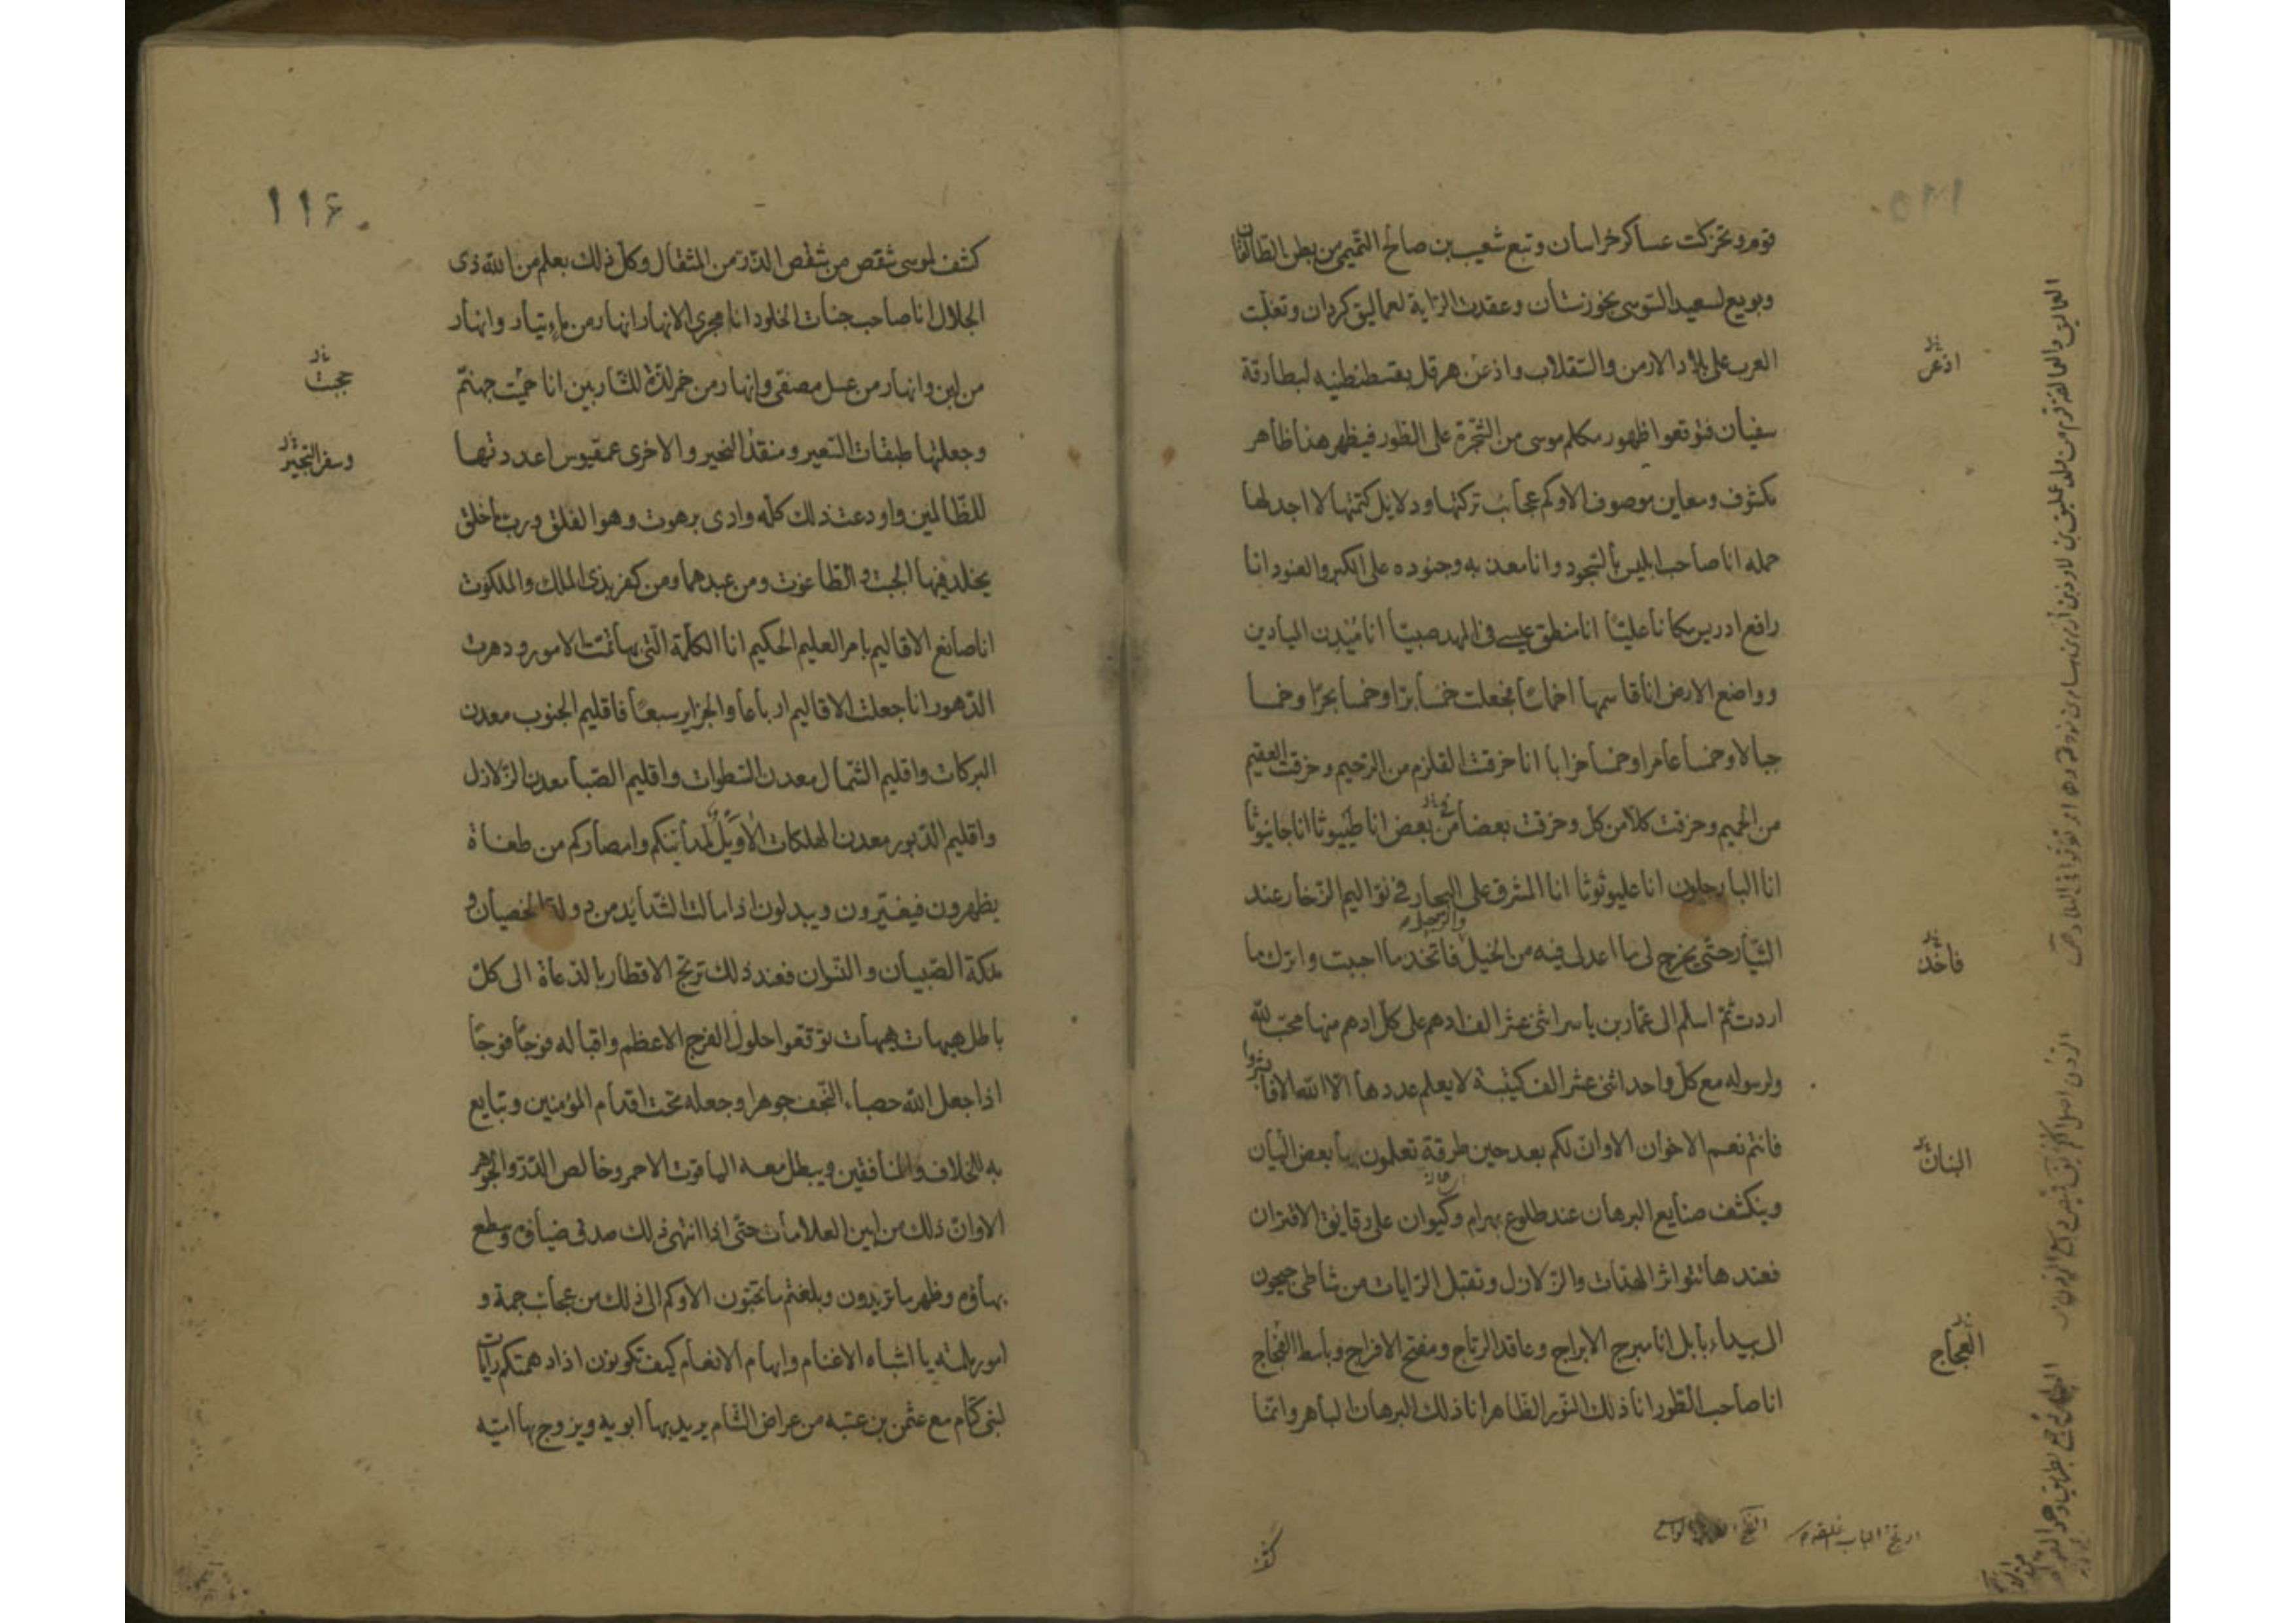 قوم وتحركت عساكر خراسان وتبع شعيب بن صالح التميمي من بطن الطالقان
وبويع لسعيد السوسي بخوزستان وعقدت الراية لعماليق كردان وتغلبت
العرب على بلاد الارمن والسقلاب واذعن هرقل بقسطنطنيه لبطارقة
سفيان فتوقعوا ظهور مكلم موسى من الشجرة على الطور فيظهر هذا ظاهر
مكشوف ومعاين موصوف الا وكم عجائب تركتها ودلايل كتمتها لا اجد لها
حمله انا صاحب ابليس بالسجود وانا معذبه وجنوده على الكبر والعنود انا
رافع ادريس مكانا عليّا انا منطق عيسى في المهد صبيّا انا مُيَدِن الميادين
وواضع الارض انا قاسمها اخماسًا فجعلت خمسًا برّا وخمسا بحرًا وخمسا
جبالا وخمسا عامرا وخمسا خرابا انا خرقت القلزم من الرّحيم وخرقت العقيم
من الحميم وخرقت كلّا من كل وخرقت بعضا من بعض انا طيبوثا انا جانبوثا
انا البارجلون انا عليوثوثا انا المشرف على البحار في نواليم الزخار عند
التيّار حتى يخرج لى ما اعد لى فيه من الخيل والرّجل فاتخذ ما احببت واترك ما
اردت ثمّ اسلم الى عمّار بن ياسر اثنى عشر الف ادهم على كل ادهم منها محبّ للّه
ولرسوله مع كلّ واحد اثنى عشر الف كتيبة لا يعلم عددها الّا اللّه الا فابشروا
فانتم نعم الاخوان الا وانّ لكم بعد حين طرفة تعلمون بها بعض البيان
وينكشف صنايع البرهان عند طلوع بهرام وكيوان على دقايق الاقتران
فعندها تتواتر الهدّات والزلازل وتقبل الرّايات من شاطى جيحون
الى بيداء بابل انا مبرج الابراج وعاقد الرتاج ومفتح الافراج وباسط الفجاج
انا صاحب الطّور انا ذلك النّور الظّاهر انا ذلك البرهان الباهر وانّما
اذعن
فاخذ
البنان
العجاج
كشف
١١٦
كشف لموسى شقص من شقص الذّرّ من المثقال وكلّ ذلك بعلم من اللّه ذى
الجلال انا صاحب جنات الخلود انا مجرى الانهار انهار من ماء تيّار وانهار
من لبن وانهار من عسل مصفّى وانهار من خمر لذّة للشّاربين انا حميت جهنّم
وجعلتها طبقات السّعير ومنقذ النحير والاخرى عمقيوس اعددتها
للظّالمين واودعت ذلك كلّه وادى برهوت وهو الفلق وربّ ما خلق
يخلد فيها الجبت والطّاغوت ومن عبدهما ومن كفر بذى الملك والملكوت
انا صانع الاقاليم بامر العليم الحكيم انا الكلمة الّتى بها تمّت الامور ودهرت
الدّهور انا جعلت الاقاليم ارباعا والجزاير سبعًا فاقليم الجنوب معدن
البركات واقليم الشّمال معدن السّطوات واقليم الصّبا معدن الزّلازل
واقليم الدّبور معدن الهلكات الا ويلٌ لمدائنكم وامصاركم من طغاة
يظهرون فيغيّرون ويبدلون اذا مالت الشّدايد من دولة الخصيان و
ملكة الصّبيان والنّسوان فعند ذلك ترتج الاقطار بالدّعاة الى كلّ
باطل هيهات هيهات توقّعوا حلول الفرج الاعظم واقباله فوجًا فوجًا
اذا جعل اللّه حصباء النّجف جوهرا وجعله تحت اقدام المؤمنين وتبايع
به للخلاف والمنافقين ويبطل معه الياقوت الاحمر وخالص الدّرّ والجوهر
الا وانّ ذلك من ابين العلامات حتّى اذا انتهى ذلك صدق ضياؤه وسطع
بهاؤه وظهر ما تريدون وبلغتم ما تحبّون الا وكم الى ذلك من عجائب جمة و
امور ملمّه يا اشباه الاغنام وابهام الانعام كيف تكونون اذا دهمتكم رايات
لبنى كنّام مع عثمن بن عنبسه من عراض الشّام يريد بها ابويه ويزوج بها اميّه
حجت